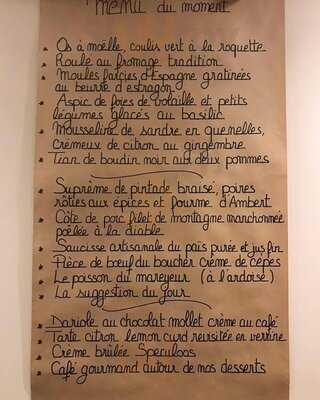 menu du moment
Os à moëlle, coulis vert à la roquette
Roule au fromage tradition
Moules farcies d'Espagne gratinées
au beurre d'estragon
Aspic de foies de volaille et petits
légumes glacés au basilic
Mousseline de sandre en quenelles,
crémeux de citron au gingembre
Tian de boudin noir aux deux pommes
Suprême de pintade braisé, poires
rôties aux épices et fourme d'Ambert
Côte de porc filet de montagne manchonnée
poêlée à la diable
Saucisse artisanale du païs purée et jus fin
Pièce de bœuf du boucher crème de cèpes
Le poisson du mareyeur (à l'ardoise)
La suggestion du jour
Dariole au chocolat mollet crème au café
Tarte citron lemon curd revisitée en verrine
Crème brûlée Speculoos
Café gourmand autour de nos desserts